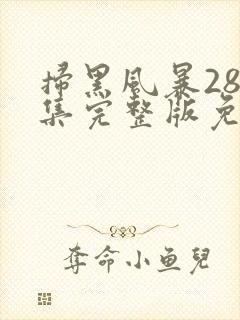 掃黑風暴28
集完整版免
奪命小鱼兒